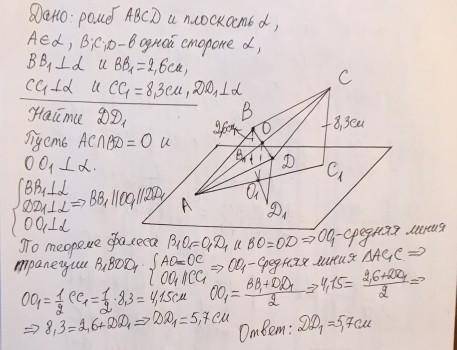 Дано: ромб ABCD и плоскость α,
A∈α, B;C;D–в одной стороне α,
BB₁⊥α и BB₁=2,6см,
CC₁⊥α и CC₁=8,3см, DD₁⊥α
Найти DD₁
Пусть AC∩BD=O и
OO₁⊥α.
{BB₁⊥α
DD₁⊥α ⇒ BB₁||OO₁||DD₁
OO₁⊥α
C
B
O
2,6см
8,3см
B₁
D
C₁
A
O₁
D₁
По теореме Фалеса B₁O₁=O₁D₁ и BO=OD ⇒ OO₁-средняя линия
трапеции B₁BDD₁. {AO=OC
OO₁||CC₁ ⇒ OO₁-средняя линия ΔAC₁C ⇒
OO₁=1/2 CC₁=1/2·8,3=4,15см OO₁=(BB₁+DD₁)/2 ⇒ 4,15=(2,6+DD₁)/2 ⇒
⇒ 8,3=2,6+DD₁ ⇒ DD₁=5,7см
Ответ: DD₁=5,7см